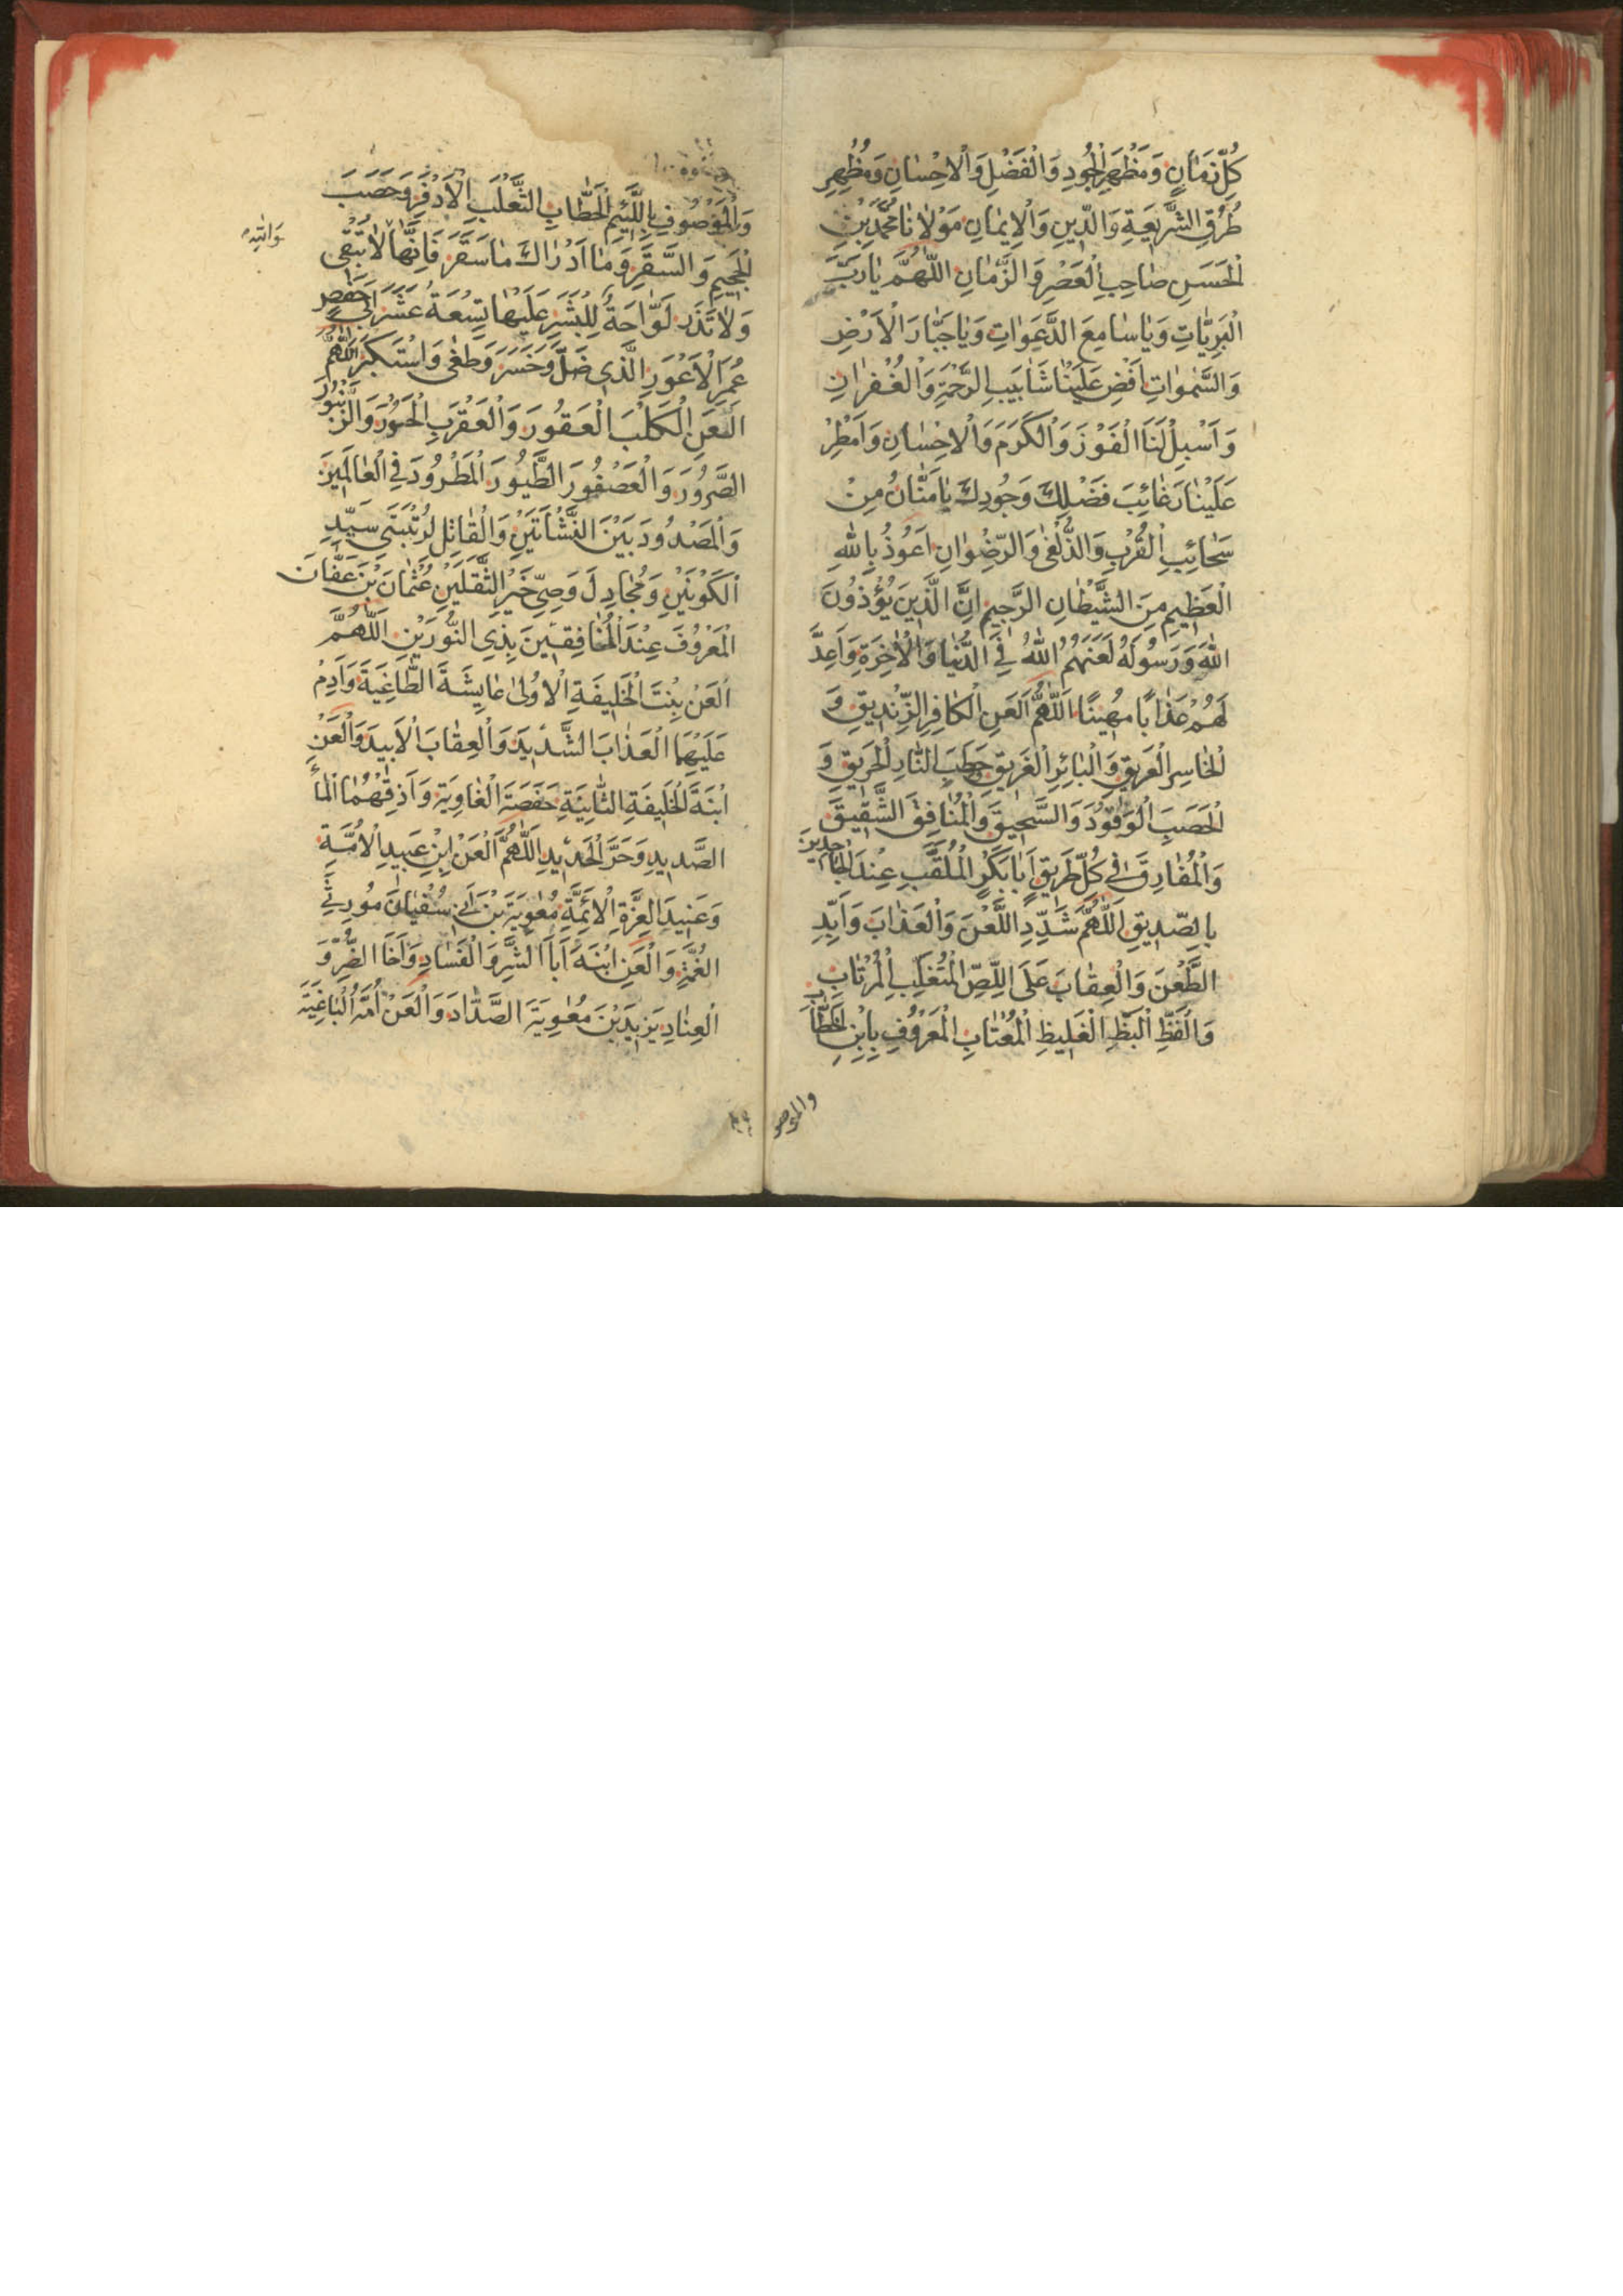 كُلِّ زَمَانٍ وَمَظْهَرِ الْجُودِ وَالْفَضْلِ وَالْاِحْسَانِ وَمُظْهِرِ
طُرُقِ الشَّرِيعَةِ وَالدِّينِ وَالْاِيمَانِ مَوْلَانَا مُحَمَّدِ بْنِ
الْحَسَنِ صَاحِبِ الْعَصْرِ وَالزَّمَانِ اَللّٰهُمَّ يَا رَبَّ
الْبَرِيَّاتِ وَيَا سَامِعَ الدَّعَوَاتِ وَيَا جَبَّارَ الْاَرْضِ
وَالسَّمٰوَاتِ اَفِضْ عَلَيْنَا شَآبِيبَ الرَّحْمَةِ وَالْغُفْرَانِ
وَاَسْبِلْ لَنَا الْفَوْزَ وَالْكَرَمَ وَالْاِحْسَانِ وَاَمْطِرْ
عَلَيْنَا رَغَائِبَ فَضْلِكَ وَجُودِكَ يَا مَنَّانُ مِنْ
سَحَائِبِ الْقُرْبِ وَالزُّلْفٰى وَالرِّضْوَانِ اَعُوذُ بِاللّٰهِ
الْعَظِيمِ مِنَ الشَّيْطَانِ الرَّجِيمِ اِنَّ الَّذِينَ يُؤْذُونَ
اللّٰهَ وَرَسُولَهُ لَعَنَهُمُ اللّٰهُ فِي الدُّنْيَا وَالْاٰخِرَةِ وَاَعَدَّ
لَهُمْ عَذَابًا مُهِينًا اَللّٰهُمَّ الْعَنِ الْكَافِرَ الزِّنْدِيقِ وَ
الْخَاسِرِ الْعَرِيقِ وَالْبَائِرِ الْغَرِيقِ حَطَبَ النَّارِ الْحَرِيقِ وَ
الْحَصَبَ الْوَقُودَ وَالسَّحِيقَ وَالْمُنَافِقَ الشَّقِيقَ
وَالْمُفَارِقَ فِي كُلِّ طَرِيقٍ اَبَا بَكْرٍ الْمُلَقَّبِ عِنْدَ الْجَاحِدِينَ
بِالصِّدِيقِ اَللّٰهُمَّ شَدِّدِ اللَّعْنَ وَالْعَذَابَ وَاَبِّدِ
الطَّعْنَ وَالْعِقَابَ عَلَى اللِّصِّ الْمُتَغَلِّبِ الْمُرْتَابِ
وَالْفَظِّ الْبَظِّ الْغَلِيظِ الْمُغْتَابِ الْمَعْرُوفِ بِابْنِ الْخَطَّابِ
والموصو
وَالْمَوْصُوفِ بِاللَّئِيمِ الْحَطَّابِ الثَّعْلَبِ الْاَدْفَرِ وَحَصَبَ
الْجَحِيمِ وَالسَّقَرِ وَمَا اَدْرَاكَ مَا سَقَرَ فَاِنَّهَا لَا تُبْقِى
وَلَا تَذَرُ لَوَّاحَةٌ لِلْبَشَرِ عَلَيْهَا تِسْعَةُ عَشَرَ اَبِي حَفْصٍ
عُمَرَ الْاَعْوَرِ الَّذِي ضَلَّ وَخَسَرَ وَطَغٰى وَاسْتَكْبَرَ اَللّٰهُمَّ
الْعَنِ الْكَلْبَ الْعَقُورَ وَالْعَقْرَبِ الْحَتُورَ وَالزَّنْبُورَ
الصَّرُورَ وَالْعَصْفُورَ الطَّيُورَ الْمَطْرُودَ فِي الْعَالَمِينَ
وَالْمَصْدُودَ بَيْنَ النَّشْأَتَيْنِ وَالْقَاتِلَ لِرُتْبَتَي سَيِّدِ
الْكَوْنَيْنِ وَمُجَادِلَ وَصِيِّ خَيْرِ الثَّقَلَيْنِ عُثْمَانَ بْنَ عَفَّانَ
الْمَعْرُوفَ عِنْدَ الْمُنَافِقِينَ بِذِي النُّورَيْنِ اَللّٰهُمَّ
الْعَنْ بِنْتَ الْخَلِيفَةِ الْاُولٰى عَايِشَةَ الطَّاغِيَةَ وَاَدِمْ
عَلَيْهَا الْعَذَابَ الشَّدِيدَ وَالْعِقَابَ الْاَبِيدَ وَالْعَنْ
ابْنَةَ الْخَلِيفَةِ الثَّانِيَةِ حَفَصَةَ الْغَاوِيَةَ وَاَذِقْهُمَا الْمَاءَ
الصَّدِيدِ وَحَرَّ الْحَدِيدِ اَللّٰهُمَّ الْعَنْ اِبْنِ عَبِيدِ الْاُمَّةِ
وَعَنِيدَ الْعِزَّةِ الْاَئِمَّةِ مُعٰوِيَةَ بْنَ اَبِي سُفْيَانَ مُورِثَ
الْغُمَّةِ وَالْعَنِ ابْنَهُ اَبَا الشَّرِّ وَالْفَسَادِ وَاَخَا الضُّرِّ وَ
الْعِنَادِ يَزِيدَ بْنَ مُعٰوِيَةَ الصَّدَّادَ وَالْعَنْ اُمَّهُ الْبَاغِيَةَ